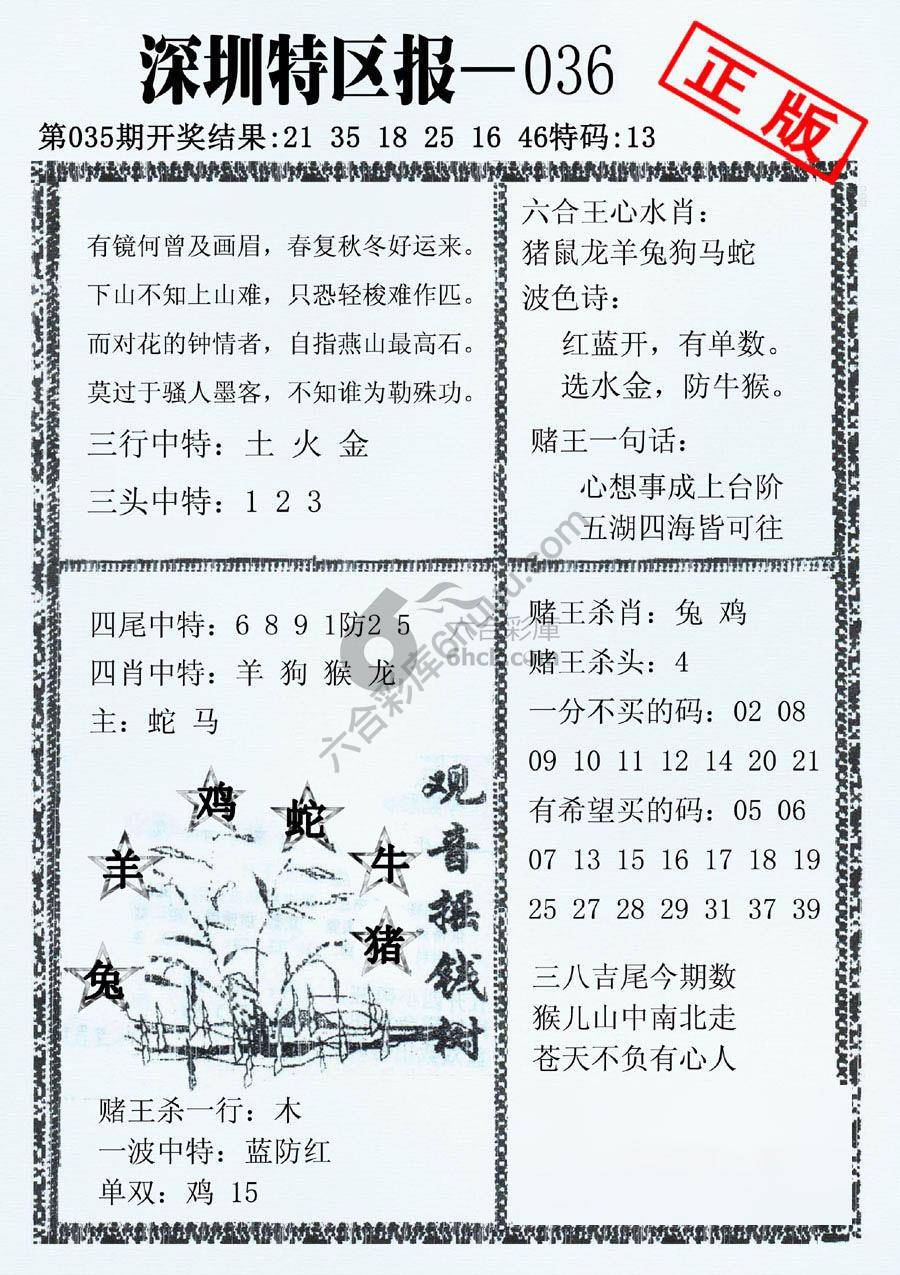 深圳特区报—036
正版
第035期开奖结果:21 35 18 25 16 46特码:13
有镜何曾及画眉，春复秋冬好运来。
下山不知上山难，只恐轻梭难作匹。
而对花的钟情者，自指燕山最高石。
莫过于骚人墨客，不知谁为勒殊功。
三行中特：土 火 金
三头中特：1 2 3
六合王心水肖：
猪鼠龙羊兔狗马蛇
波色诗：
红蓝开，有单数。
选水金，防牛猴。
赌王一句话：
心想事成上台阶
五湖四海皆可往
四尾中特：6 8 9 1防2 5
四肖中特：羊 狗 猴 龙
主：蛇 马
鸡
蛇
羊
牛
猪
兔
观音摇钱树
赌王杀一行：木
一波中特：蓝防红
单双：鸡 15
赌王杀肖：兔 鸡
赌王杀头：4
一分不买的码：02 08
09 10 11 12 14 20 21
有希望买的码：05 06
07 13 15 16 17 18 19
25 27 28 29 31 37 39
三八吉尾今期数
猴儿山中南北走
苍天不负有心人
六合彩库
6hck.com
六合彩库6hutu.com